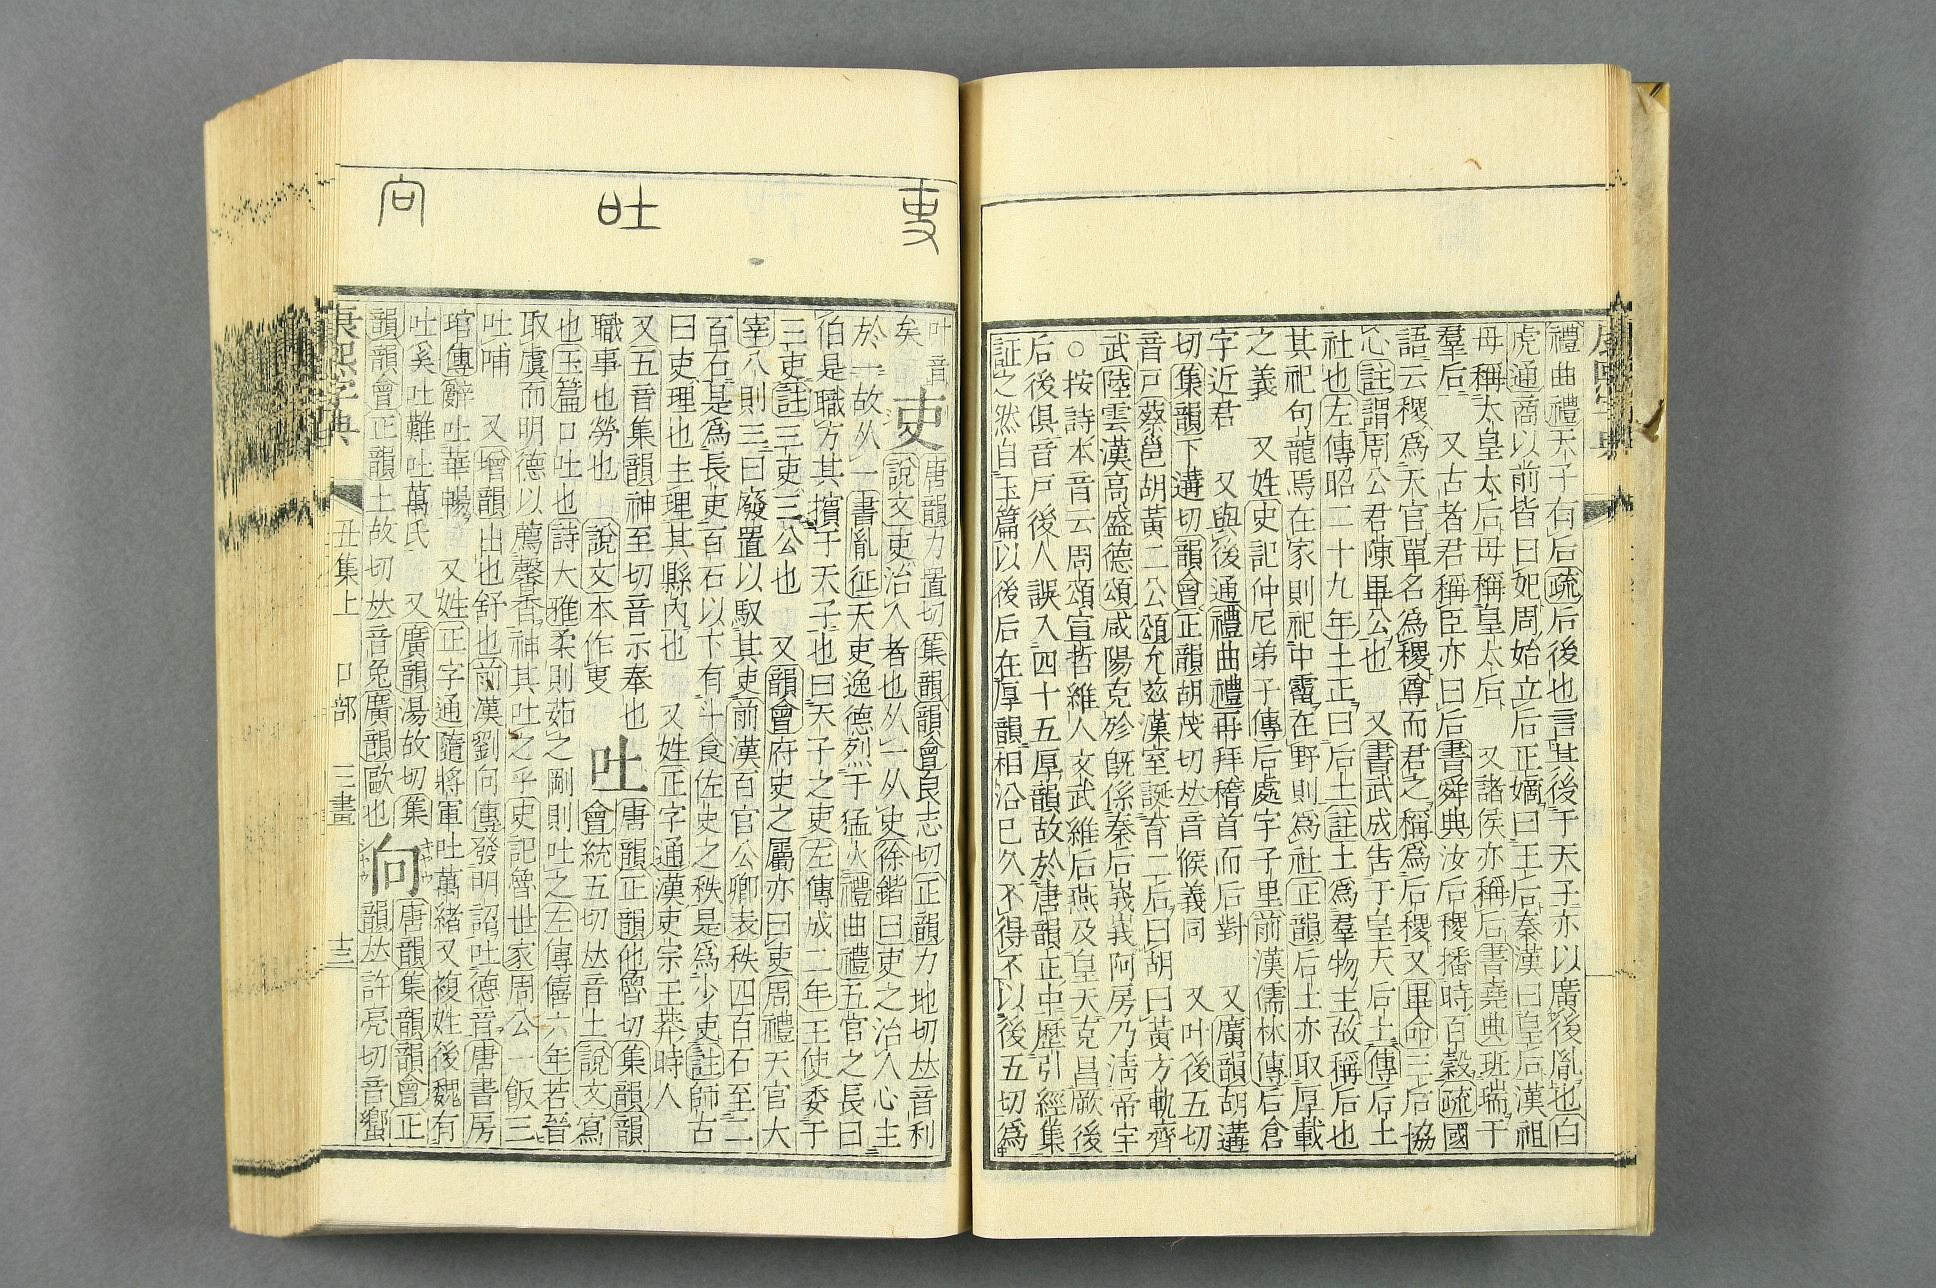 禮曲禮天子有后疏后後也言其後于天子亦以廣後胤也白
虎通商以前皆曰妃周始立后正嫡曰王后秦漢曰皇后漢祖
母稱太皇太后母稱皇太后　又諸侯亦稱后書堯典班瑞于
羣后　又古者君稱臣亦曰后書舜典汝后稷播時百穀疏國
語云稷為天官單名為稷尊而君之稱為后稷又畢命三后協
心註謂周公君陳畢公也　又書武成告于皇天后土傳后土
社也左傳昭二十九年土正曰后土註土為羣物主故稱后也
其祀句龍焉在家則祀中霤在野則為社正韻后土亦取厚載
之義　又姓史記仲尼弟子傳后處字子里前漢儒林傳后倉
字近君　又與後通禮曲禮再拜稽首而后對　又廣韻胡遘
切集韻下遘切韻會正韻胡茂切𠀤音候義同　又叶後五切
音戸蔡邕胡黃二公頌允兹漢室誕育二后曰胡曰黃方軌齊
武陸雲漢高盛德頌咸陽克殄旣係秦后峩峩阿房乃淸帝宇
○按詩本音云周頌宣哲維人文武維后燕及皇天克昌厥後
后後俱音戸後人誤入四十五厚韻故於唐韻正中歷引經集
証之然自玉篇以後后在厚韻相沿已久不得不以後五切為
吏
吐
向
叶音　吏　唐韻力置切集韻韻會良志切正韻力地切𠀤音利
矣　說文吏治人者也从一从史徐鍇曰吏之治人心主
於一故从一書胤征天吏逸德烈于猛火禮曲禮五官之長曰
伯是職方其擯于天子也曰天子之吏左傳成二年王使委于
三吏註三吏三公也　又韻會府史之屬亦曰吏周禮天官大
宰八則三曰廢置以馭其吏前漢百官公卿表秩四百石至二
百石是為長吏百石以下有斗食佐史之秩是為少吏註師古
曰吏理也主理其縣內也　又姓正字通漢吏宗王莽時人
又五音集韻神至切音示奉也　吐　唐韻正韻他魯切集韻韻
職事也勞也　說文本作叓　會統五切𠀤音土說文寫
也玉篇口吐也詩大雅柔則茹之剛則吐之左傳僖六年若晉
取虞而明德以薦馨香神其吐之乎史記魯世家周公一飯三
吐哺　又增韻出也舒也前漢劉向傳發明詔吐德音唐書房
琯傳辭吐華暢　又姓正字通隨將軍吐萬緒又複姓後魏有
吐奚吐難吐萬氏　又廣韻湯故切集　向　キャウ　唐韻集韻韻會正
韻韻會正韻土故切𠀤音兔廣韻歐也　シャウ　韻𠀤許亮切音嚮
康熙字典　丑集上　口部　三畫　十三